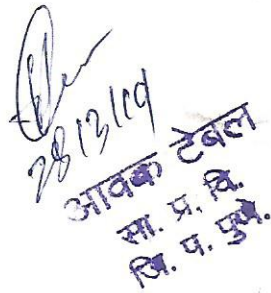 28/3/19
आवक टेबल
सा. प्र. वि.
जि. प. पुणे.